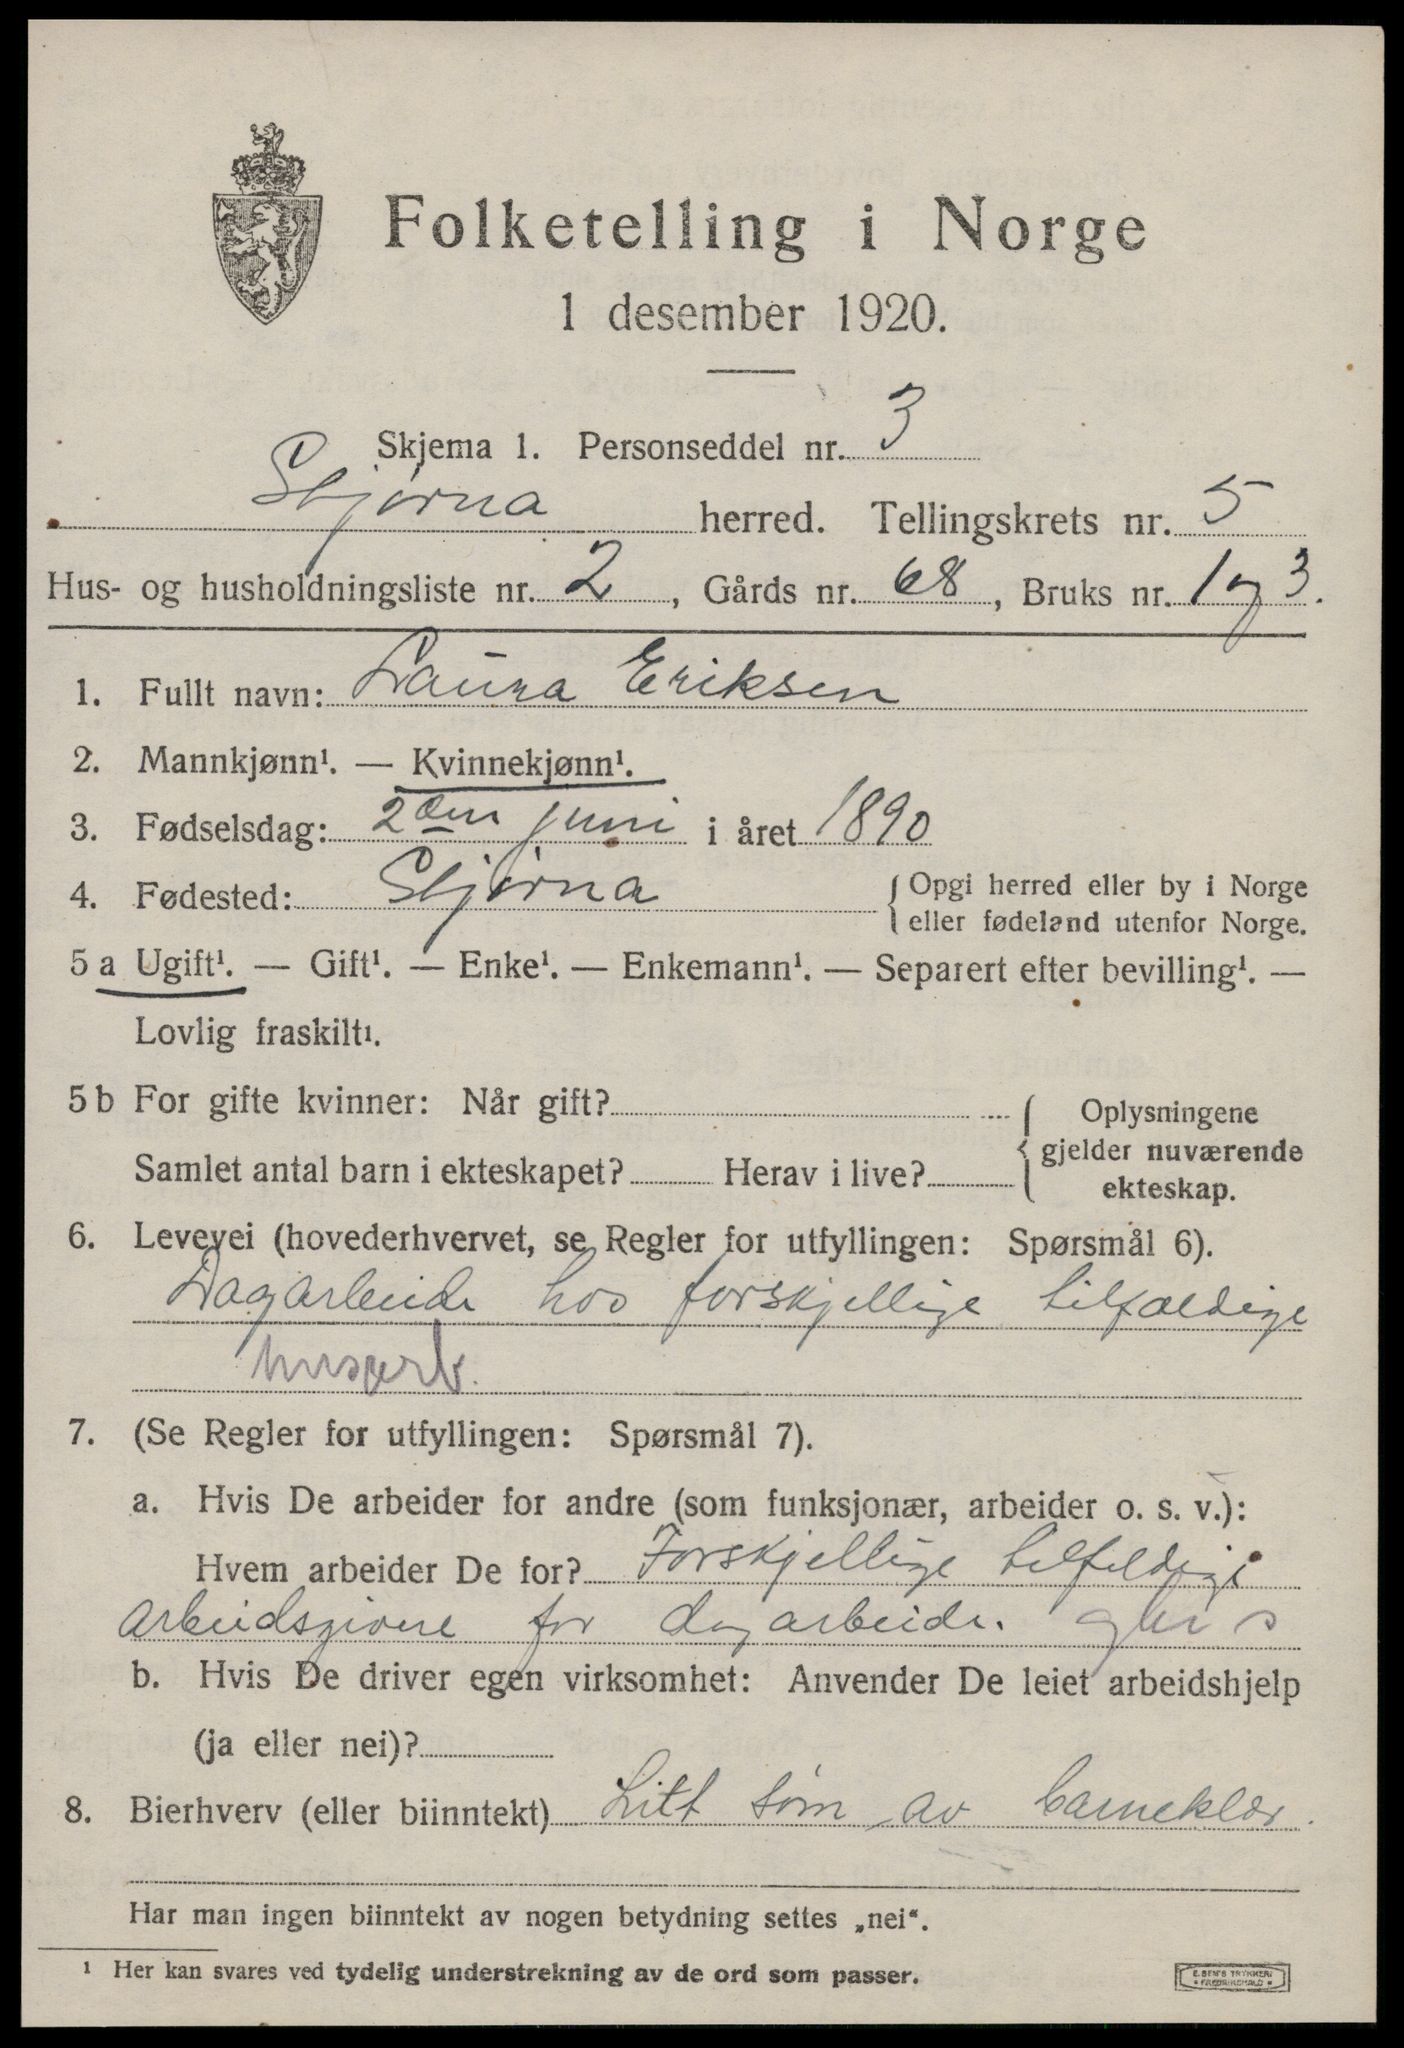 Folketelling i Norge
1 desember 1920.
Skjema 1. Personseddel nr. 3
Stjørna herred. Tellingskrets nr. 5
Hus- og husholdningsliste nr. 2, Gårds nr. 68, Bruks nr. 1 og 3.
1. Fullt navn: Laura Eriksen
2. Mannkjønn¹. — Kvinnekjønn¹.
3. Fødselsdag: 2den juni i året 1890
4. Fødested: Stjørna { Opgi herred eller by i Norge
eller fødeland utenfor Norge.
5 a Ugift¹. — Gift¹. — Enke¹. — Enkemann¹. — Separert efter bevilling¹. —
Lovlig fraskilt¹.
5 b For gifte kvinner: Når gift? { Oplysningene
gjelder nuværende
ekteskap.
Samlet antal barn i ekteskapet? Herav i live?
6. Levevei (hovederhvervet, se Regler for utfyllingen: Spørsmål 6).
Dagarbeide hos forskjellige tilfældige
husarb.
7. (Se Regler for utfyllingen: Spørsmål 7).
a. Hvis De arbeider for andre (som funksjonær, arbeider o. s. v.):
Hvem arbeider De for? Forskjellige tilfeldige
arbeidsgivere for dagarbeide.
b. Hvis De driver egen virksomhet: Anvender De leiet arbeidshjelp
(ja eller nei)?
8. Bierhverv (eller biinntekt) Litt søm av barneklær.
Har man ingen biinntekt av nogen betydning settes „nei“.
¹ Her kan svares ved tydelig understrekning av de ord som passer.
E. SEM'S TRYKKERI
* FREDRIKSHALD *